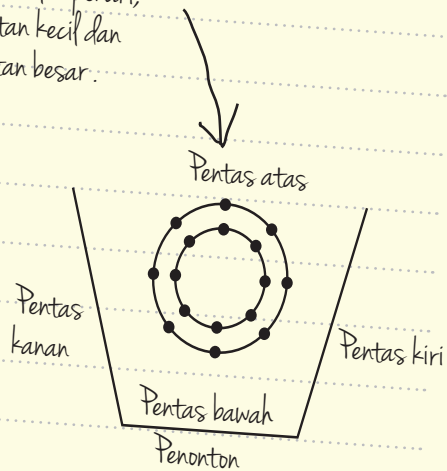 tan kecil dan
tan besar.
Pentas atas
Pentas
kanan
Pentas kiri
Pentas bawah
Penonton